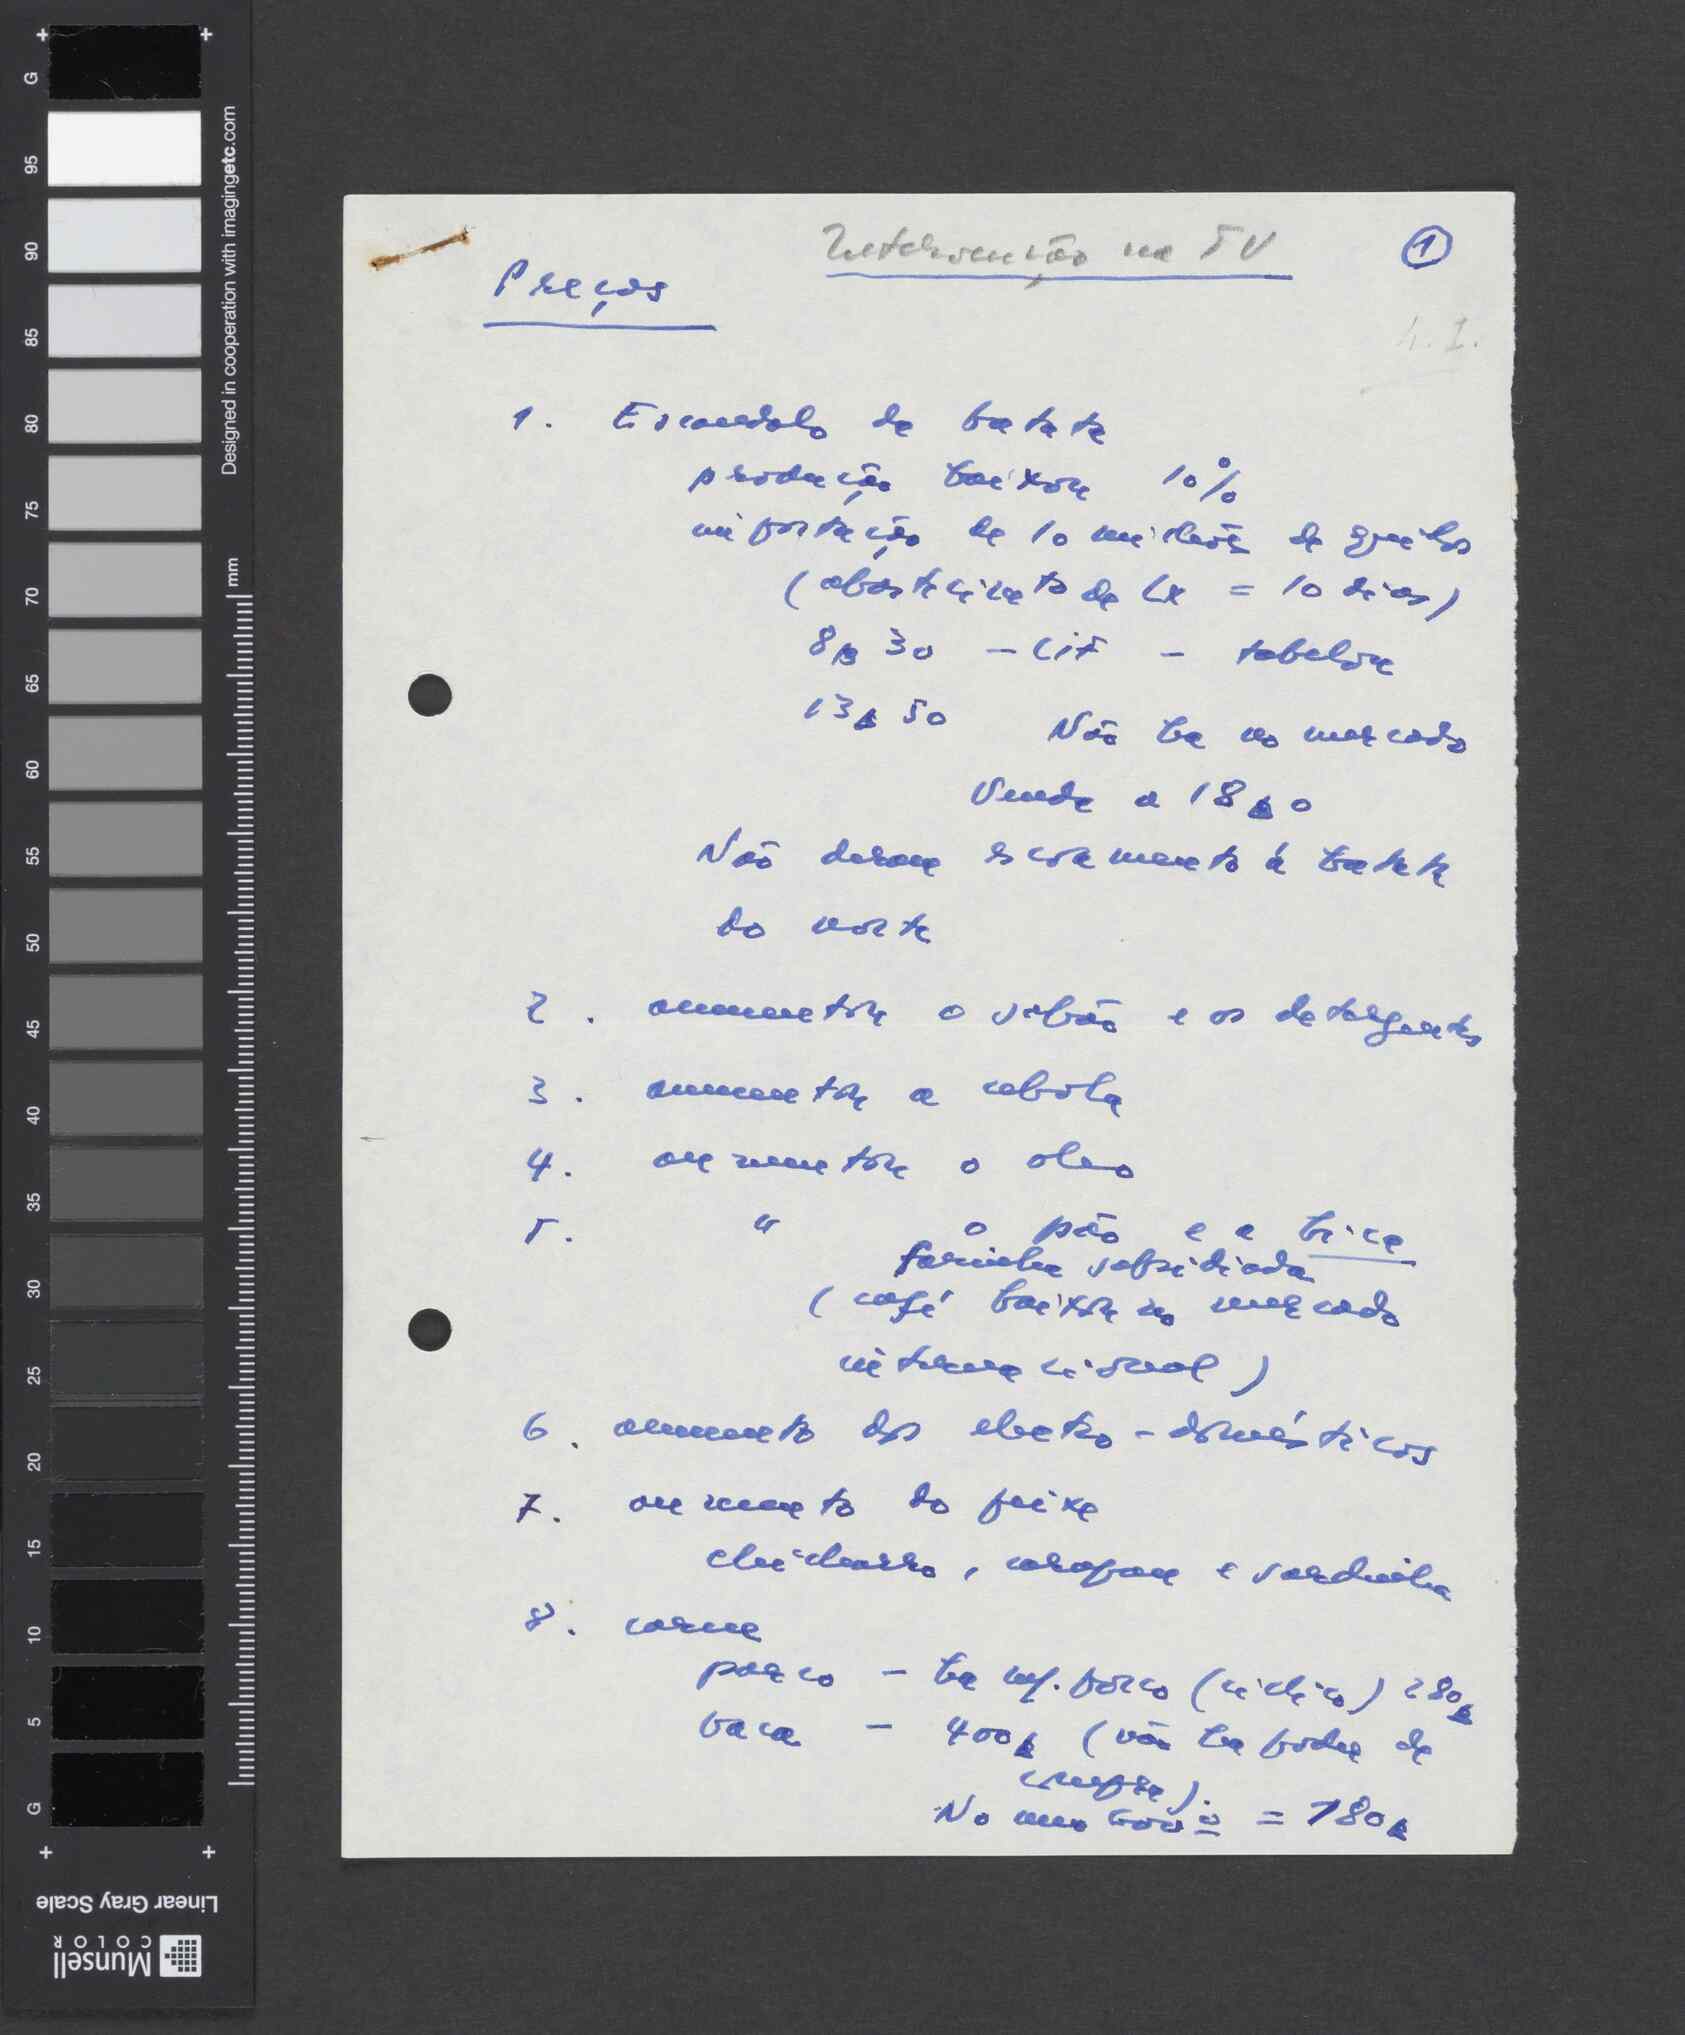 Intervenção na TV
①
Preços
1. Escandalo da batata
produção baixou 10%
importação de 10 milhões de quilos
(abastecimento de Lx = 10 dias)
8$30 - Cif - tabelou
13$50 Não há no mercado
Vende a 18$0
Não deram escoamento à batata
do norte
2. aumentou o sabão e os detergentes
3. aumentou a cebola
4. aumentou o oleo
5. " o pão e a bica
farinha subsidiada
(café baixou no mercado
internacional)
6. aumento dos electro-domésticos
7. aumento do peixe
chicharro, carapau e sardinha
8. carne
porco - há porco (ciclico) 280$
vaca - 400$ (não há poder de
compra).
No = 780$
G 95 90 85 80 75 70 65 60 55 50 45 40 35 30 25 20 15 10 5 G
Designed in cooperation with imagingetc.com
mm
Linear Gray Scale
Munsell
COLOR